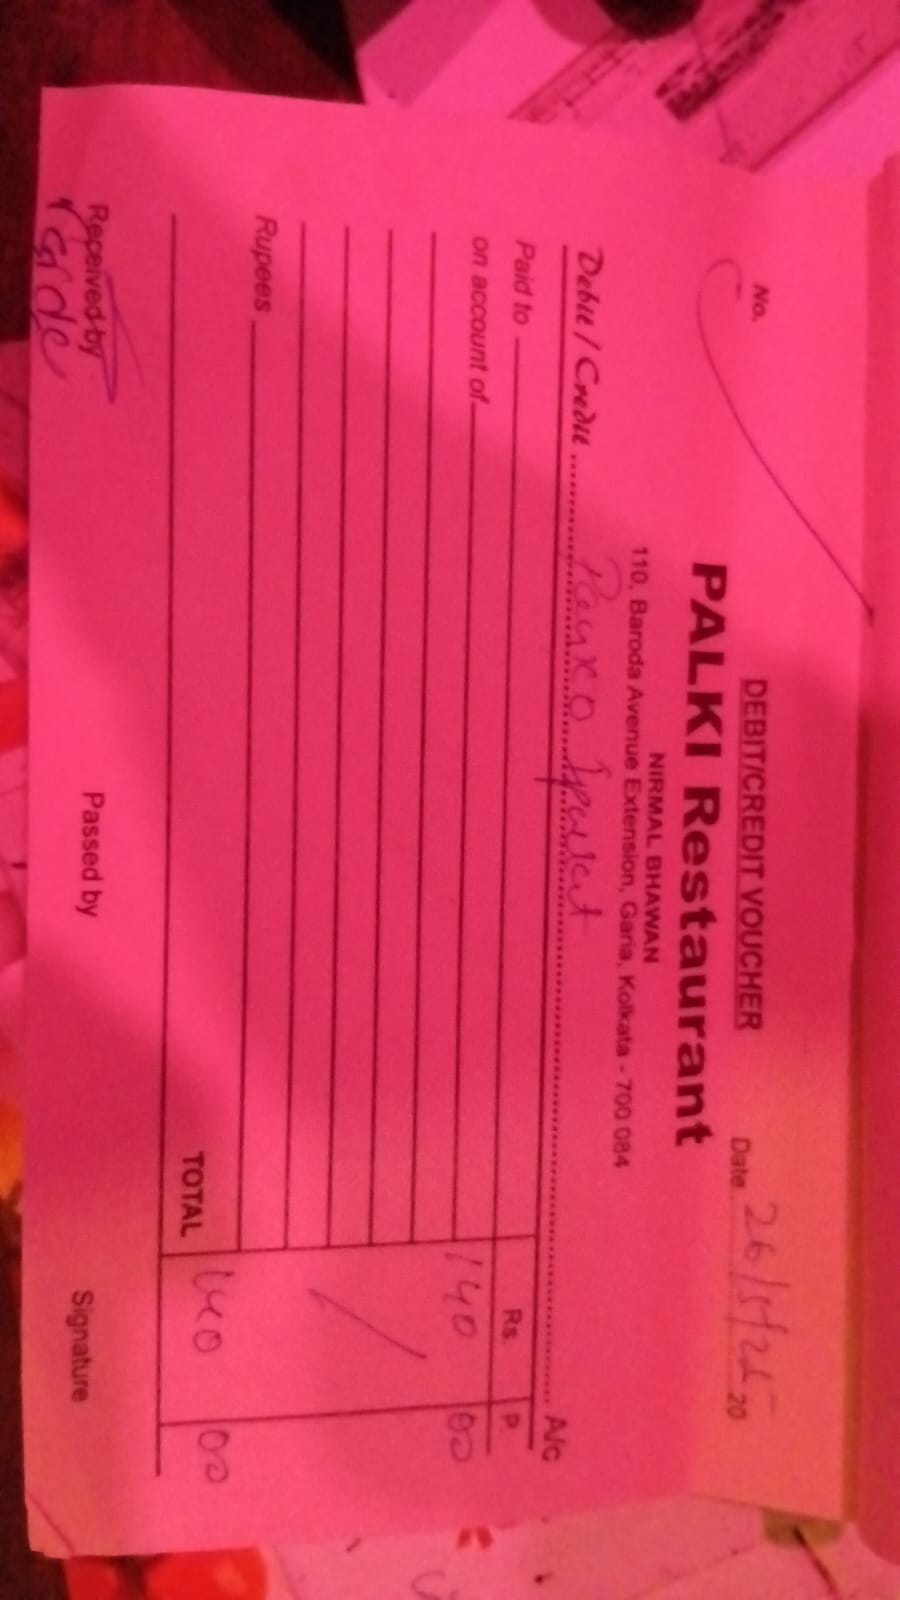 DEBIT/CREDIT VOUCHER
No.
Date 26/5/25 20
PALKI Restaurant
NIRMAL BHAWAN
110, Baroda Avenue Extension, Garia, Kolkata - 700 084
Debit / Credit A/c
Paid to Rs. P.
on account of 140 00
Rupees
TOTAL 140 00
Received by Passed by Signature